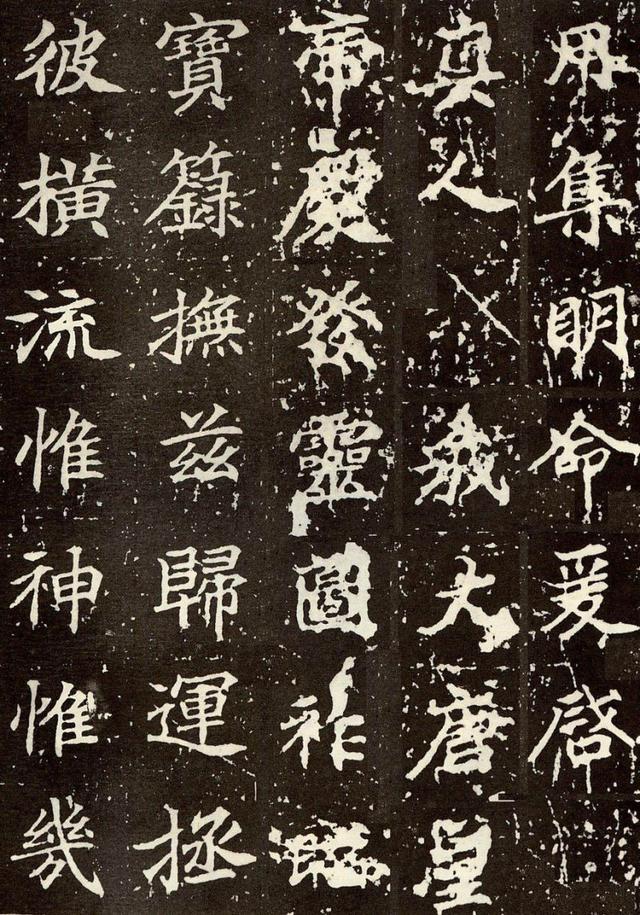 用集明命爰啓
真人我大唐皇
帝厥發靈圖祚
寶籙撫兹歸運拯
彼橫流惟神惟幾